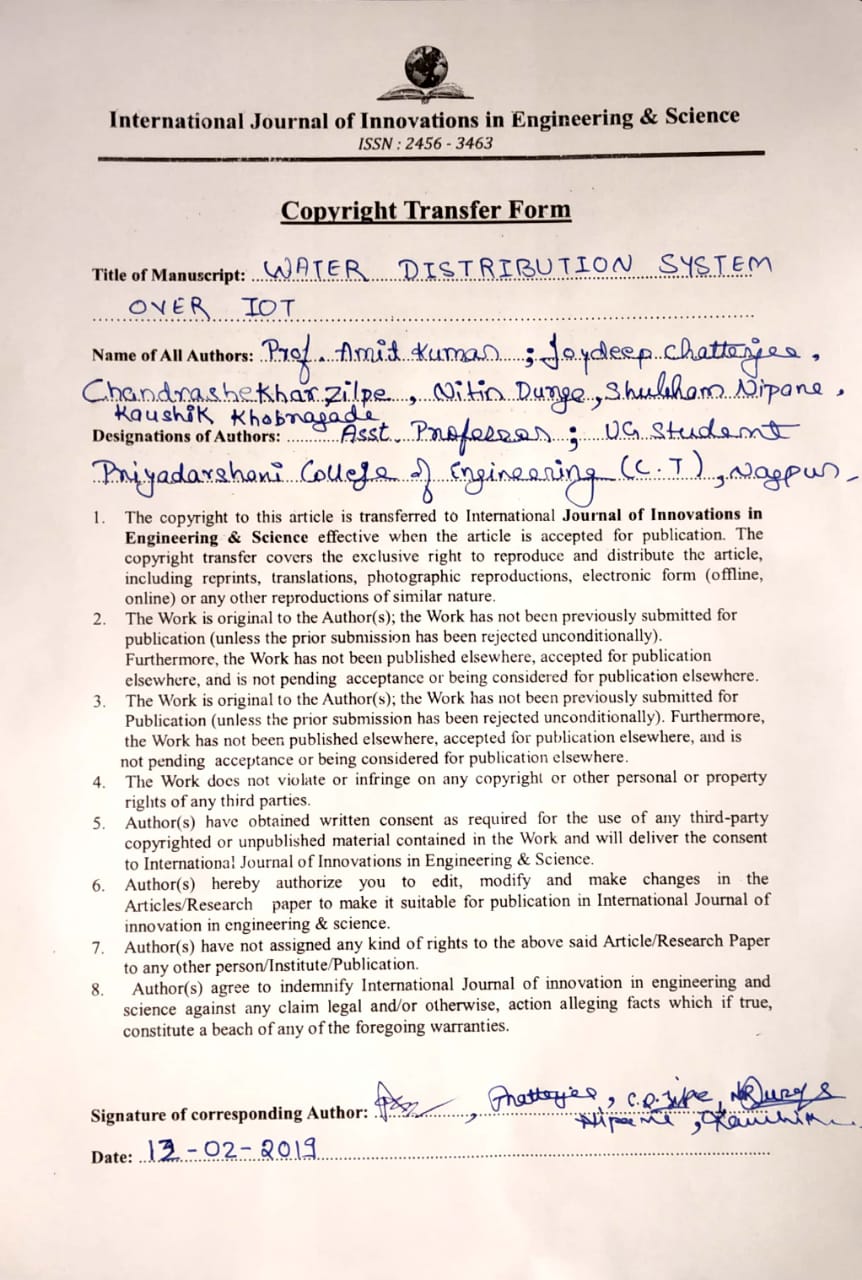 International Journal of Innovations in Engineering & Science
ISSN : 2456 - 3463
Copyright Transfer Form
Title of Manuscript: WATER DISTRIBUTION SYSTEM
OVER IOT
Name of All Authors: Prof. Amit Kumar ; Joydeep Chatterjee,
Chandrashekhar Zilpe, Nitin Durge, Shubham Nipane,
Kaushik Khobragade
Designations of Authors: Asst. Professor ; UG Student
Priyadarshani College of Engineering (C.T), Nagpur.
1. The copyright to this article is transferred to International Journal of Innovations in
Engineering & Science effective when the article is accepted for publication. The
copyright transfer covers the exclusive right to reproduce and distribute the article,
including reprints, translations, photographic reproductions, electronic form (offline,
online) or any other reproductions of similar nature.
2. The Work is original to the Author(s); the Work has not been previously submitted for
publication (unless the prior submission has been rejected unconditionally).
Furthermore, the Work has not been published elsewhere, accepted for publication
elsewhere, and is not pending acceptance or being considered for publication elsewhere.
3. The Work is original to the Author(s); the Work has not been previously submitted for
Publication (unless the prior submission has been rejected unconditionally). Furthermore,
the Work has not been published elsewhere, accepted for publication elsewhere, and is
not pending acceptance or being considered for publication elsewhere.
4. The Work does not violate or infringe on any copyright or other personal or property
rights of any third parties.
5. Author(s) have obtained written consent as required for the use of any third-party
copyrighted or unpublished material contained in the Work and will deliver the consent
to International Journal of Innovations in Engineering & Science.
6. Author(s) hereby authorize you to edit, modify and make changes in the
Articles/Research paper to make it suitable for publication in International Journal of
innovation in engineering & science.
7. Author(s) have not assigned any kind of rights to the above said Article/Research Paper
to any other person/Institute/Publication.
8. Author(s) agree to indemnify International Journal of innovation in engineering and
science against any claim legal and/or otherwise, action alleging facts which if true,
constitute a beach of any of the foregoing warranties.
Signature of corresponding Author: , Chatterjee, C.D. Zilpe,
Nipane, Kaushik
Date: -02-2019